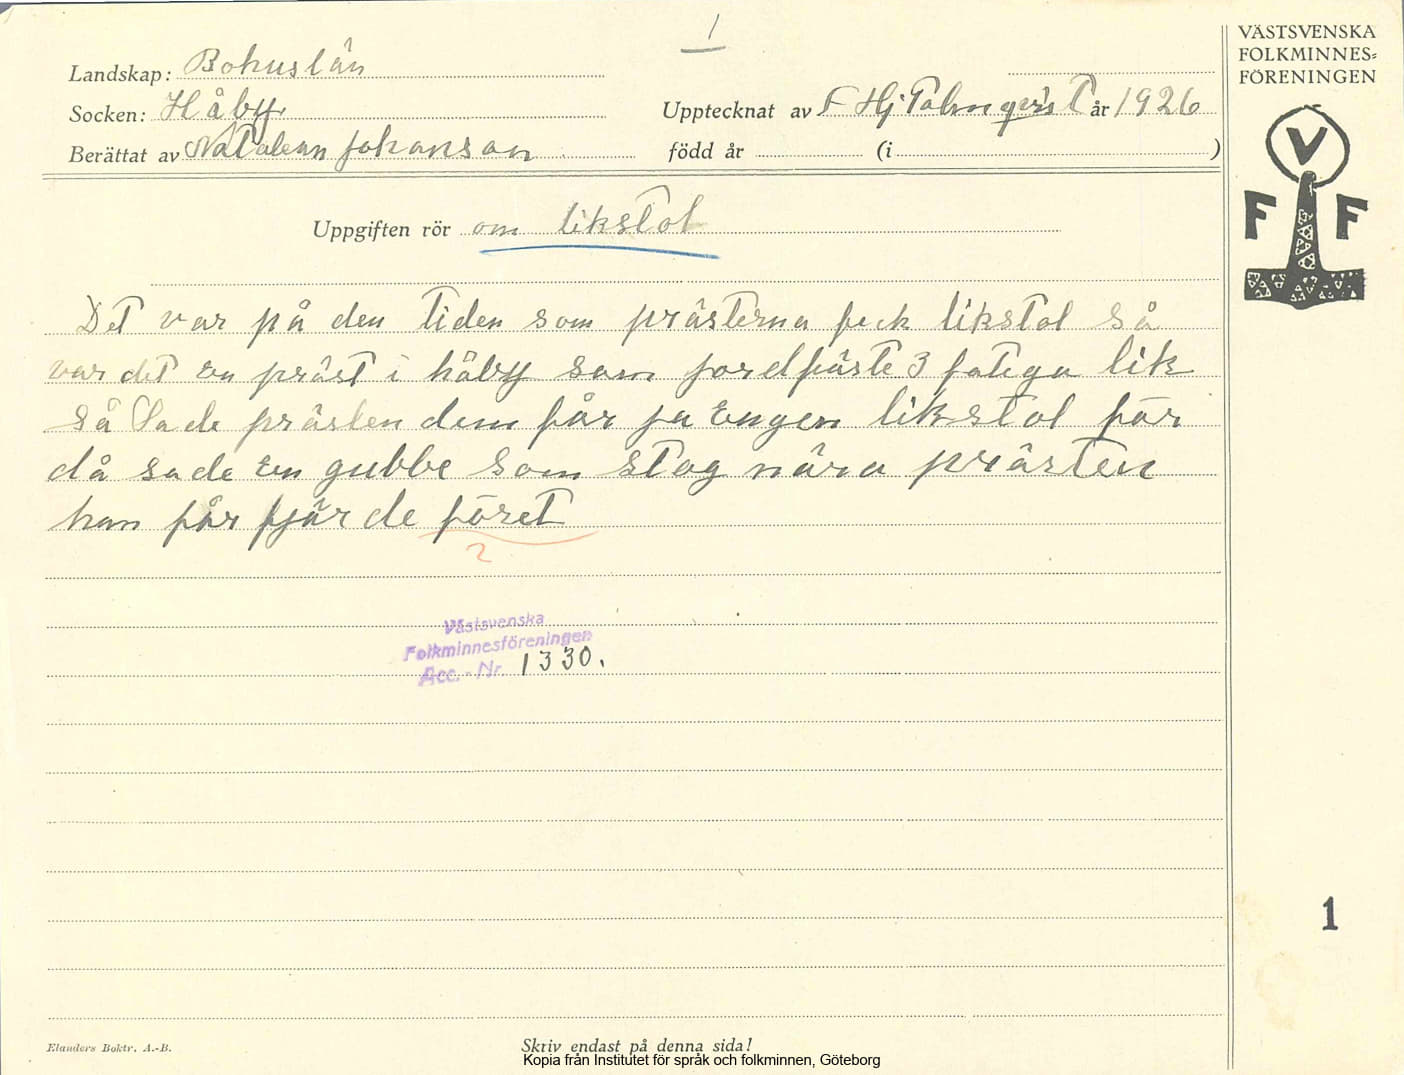 1
VÄSTSVENSKA
FOLKMINNES-
FÖRENINGEN
V
F F
Landskap: Bohuslän
Socken: Håby
Upptecknat av F Hj Talmqvist år 1926
Berättat av Johanson
född år (i )
Uppgiften rör om likstol
Det var på den tiden som prästerna feck likstol så
var det en präst i håby som jordfäste 3 fatega lik
så sade prästen dem får ja Engen likstol för
då sade En gubbe som stog nära prästen
han får fjärde föret
?
Västsvenska
Folkminnesföreningen
Acc.-Nr. 1330.
1
Elanders Boktr. A.-B.
Skriv endast på denna sida!
Kopia från Institutet för språk och folkminnen, Göteborg